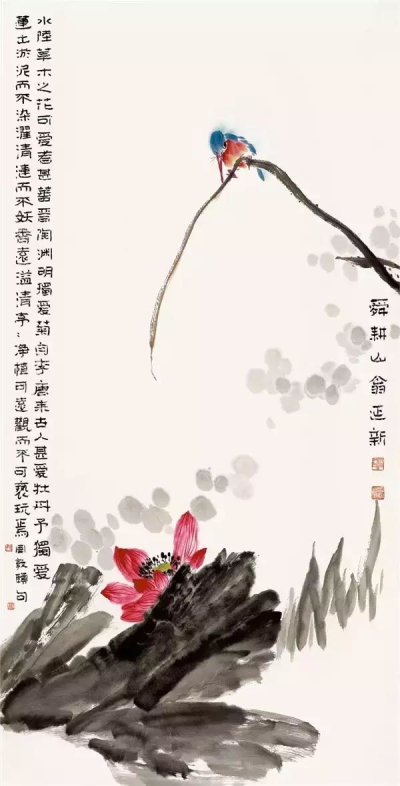 舜耕山翁延新
水陸草木之花可愛者甚蕃晉陶渊明獨愛菊自李唐来古人甚愛牡丹予獨愛
蓮出淤泥而不染濯清漣而不妖香遠溢清亭〻净植可遠觀而不可亵玩焉周敦頤句